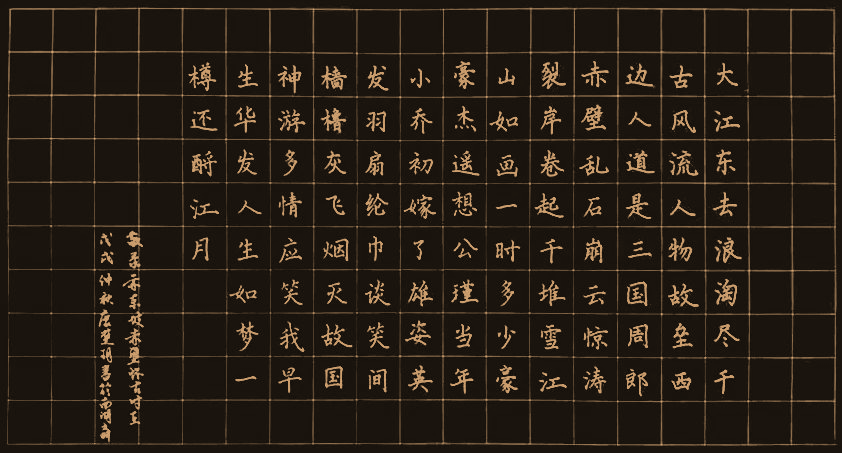 大江东去浪淘尽千
古风流人物故垒西
边人道是三国周郎
赤壁乱石崩云惊涛
裂岸卷起千堆雪江
山如画一时多少豪
豪杰遥想公瑾当年
小乔初嫁了雄姿英
发羽扇纶巾谈笑间
樯橹灰飞烟灭故国
神游多情应笑我早
生华发人生如梦一
樽还酹江月
东坡赤壁怀古时在
戊戌仲秋唐书於西湖